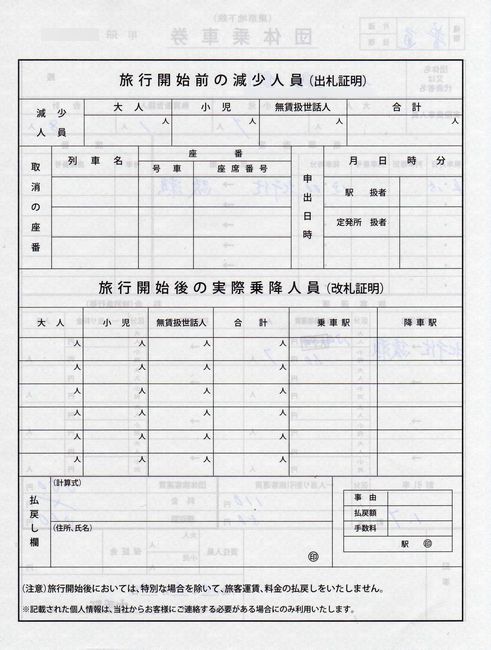 旅行開始前の減少人員（出札証明）
減少人員 大人 小児 無賃扱世話人 合計
人 人 人 人
取消の座番 列車名 座番 申出日時 月日時分
号車 座席番号
駅 扱者
定発所 扱者
旅行開始後の実際乗降人員（改札証明）
大人 小児 無賃扱世話人 合計 乗車駅 降車駅
人 人 人 人
人 人 人 人
人 人 人 人
人 人 人 人
人 人 人 人
人 人 人 人
払戻し欄 (計算式)
事由
払戻額
(住所、氏名) 手数料
駅 ㊞
㊞
（注意）旅行開始後においては、特別な場合を除いて、旅客運賃、料金の払戻しをいたしません。
※記載された個人情報は、当社からお客様にご連絡する必要がある場合にのみ利用いたします。